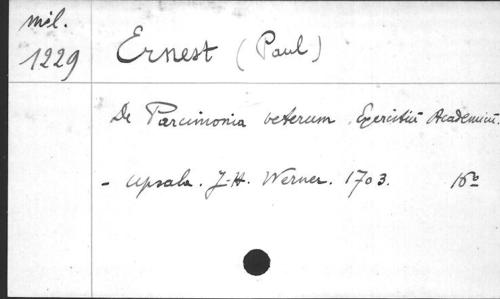 mél.
1229
Ernest (Paul)
De Parcimonia veterum Exercitiu Academicu.
- Upsala. J-H. Werner. 1703. 16º